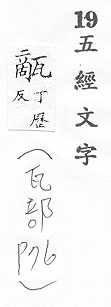 19 五經文字
甋
丁歷
反
(瓦部 P76)